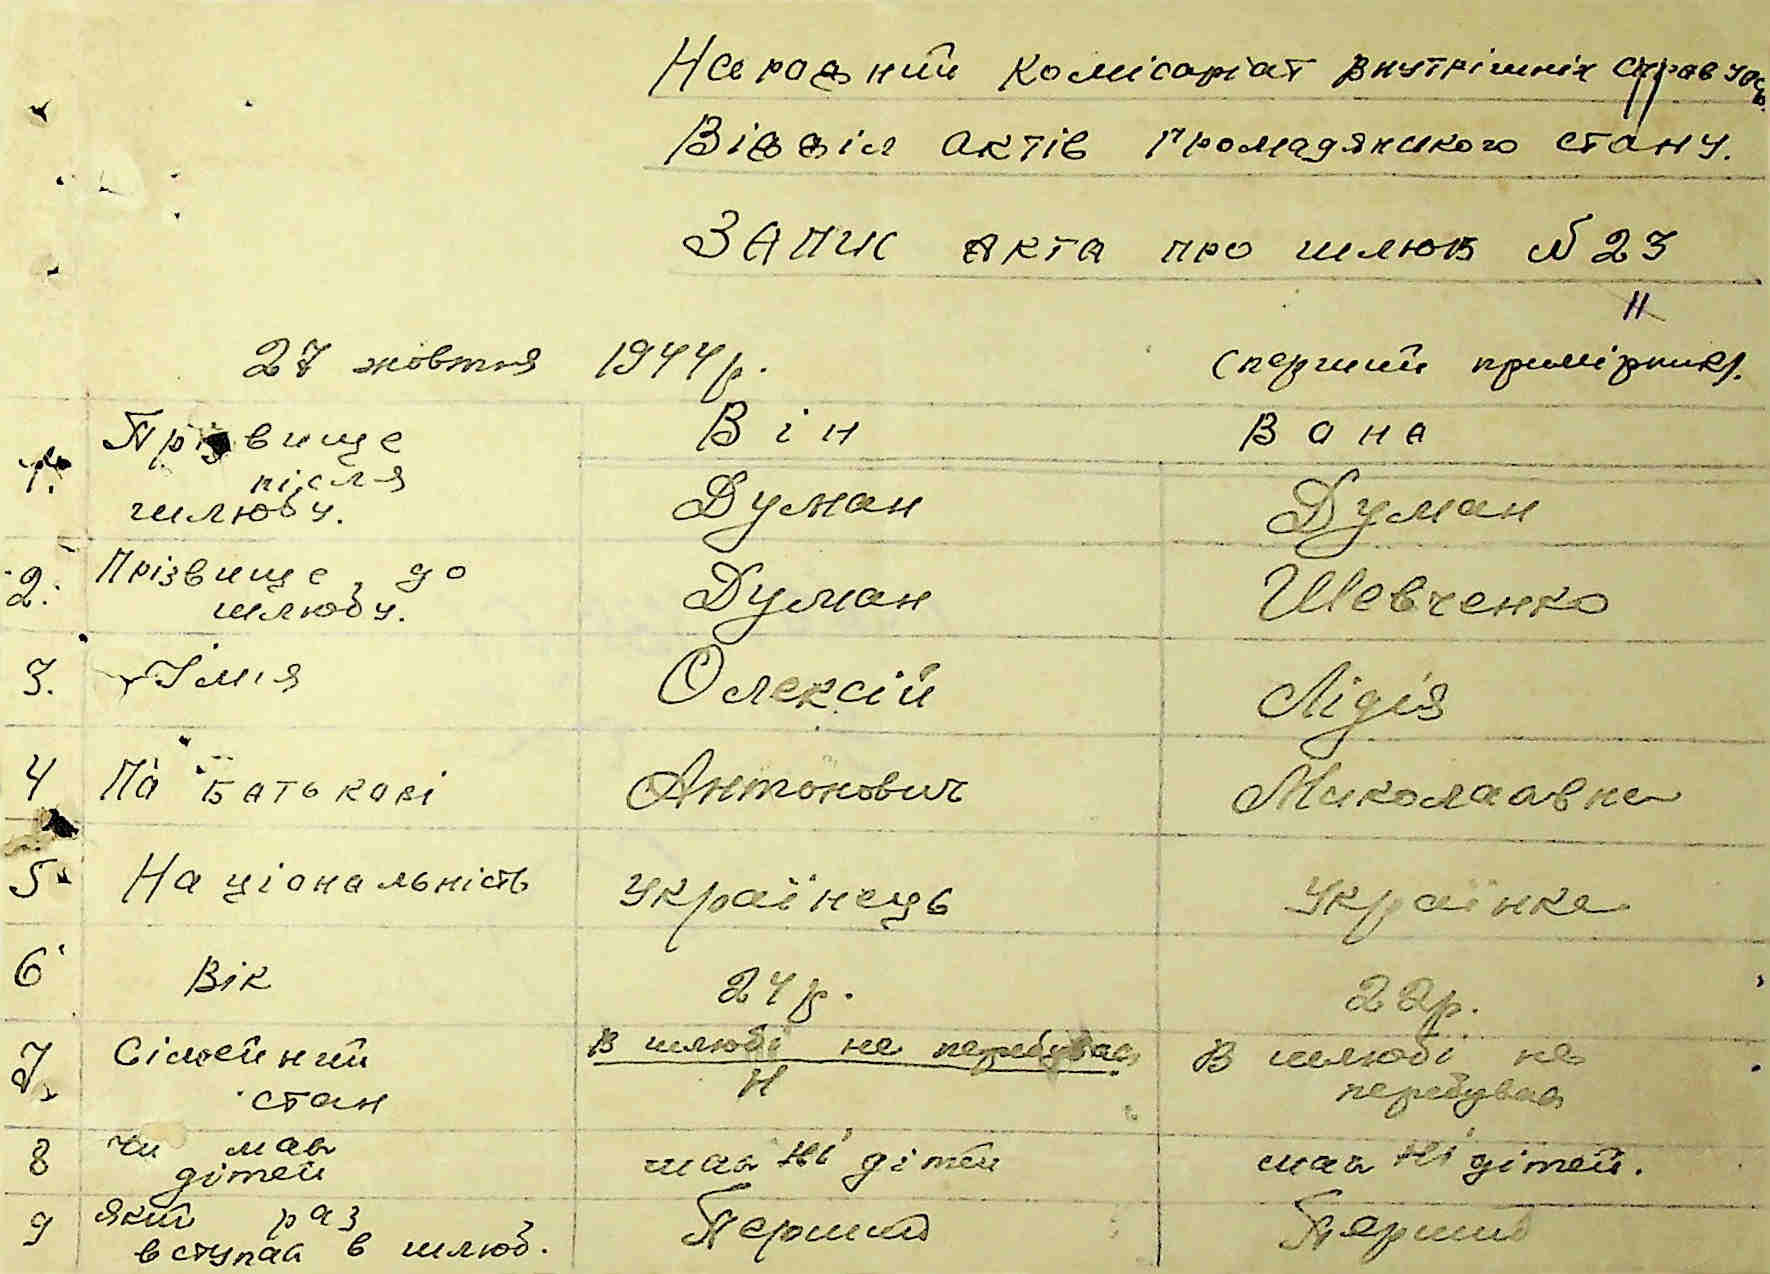 Народний Комісаріат Внутрішніх Справ УРСР.
Відділ актів Громадянського стану.
Запис акта про шлюб № 23
27 жовтня 1944 р. (перший примірник).
Він Вона
1. Прізвище після шлюбу. Думан Думан
2. Прізвище до шлюбу. Думан Шевченко
3. Імья Олексій Лідія
4 Па Батькові Антонович Миколаавна
5 Національність Українець Українка
6 Вік 24 р. 22 р.
7. Сімейний стан В шлюбі не перебував В шлюбі не перебував
8 Чи мав дітей мав ні дітей мав ні дітей.
9 Який раз вступав в шлюб. Перший Перший